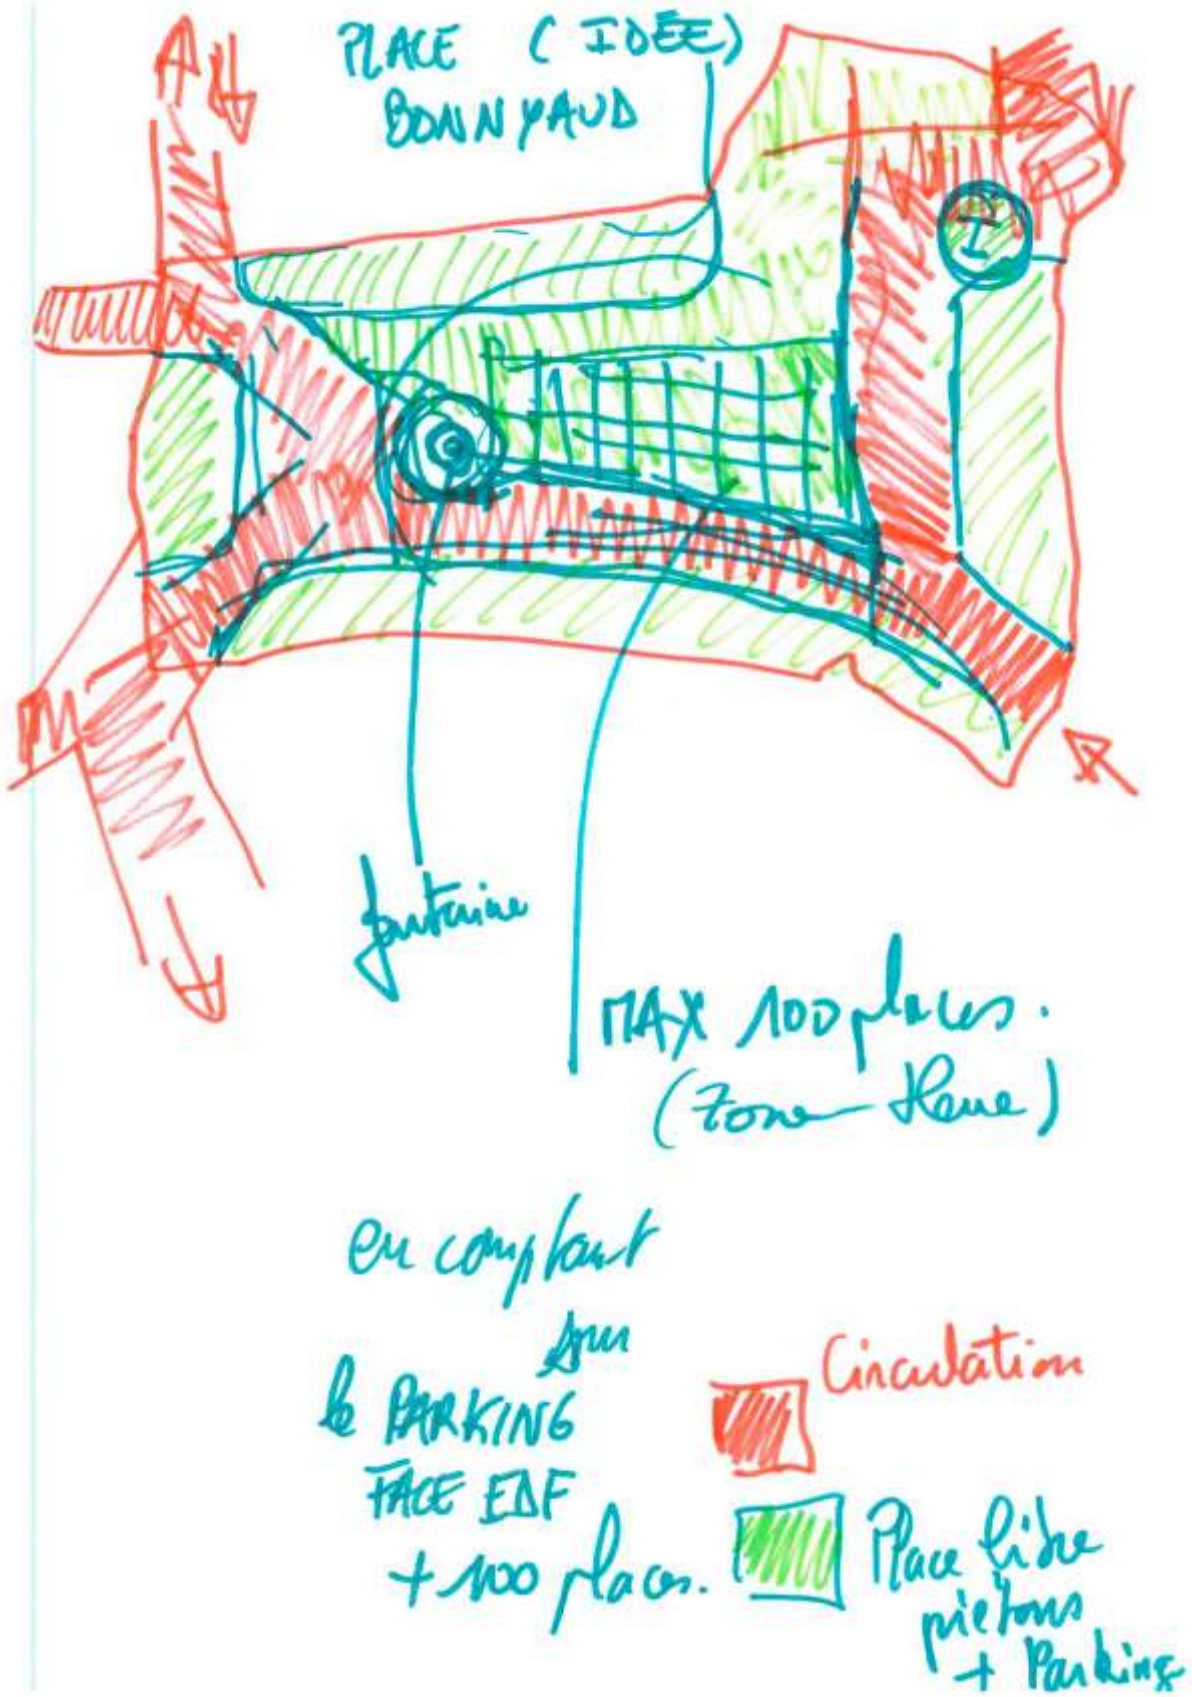 PLACE (IDÉE)
BONNYAUD
I
fontaine
MAX 100 places.
(Zone bleue)
en comptant
sur
le PARKING
FACE EDF
+ 100 places.
Circulation
Place libre
piétons
+ Parking